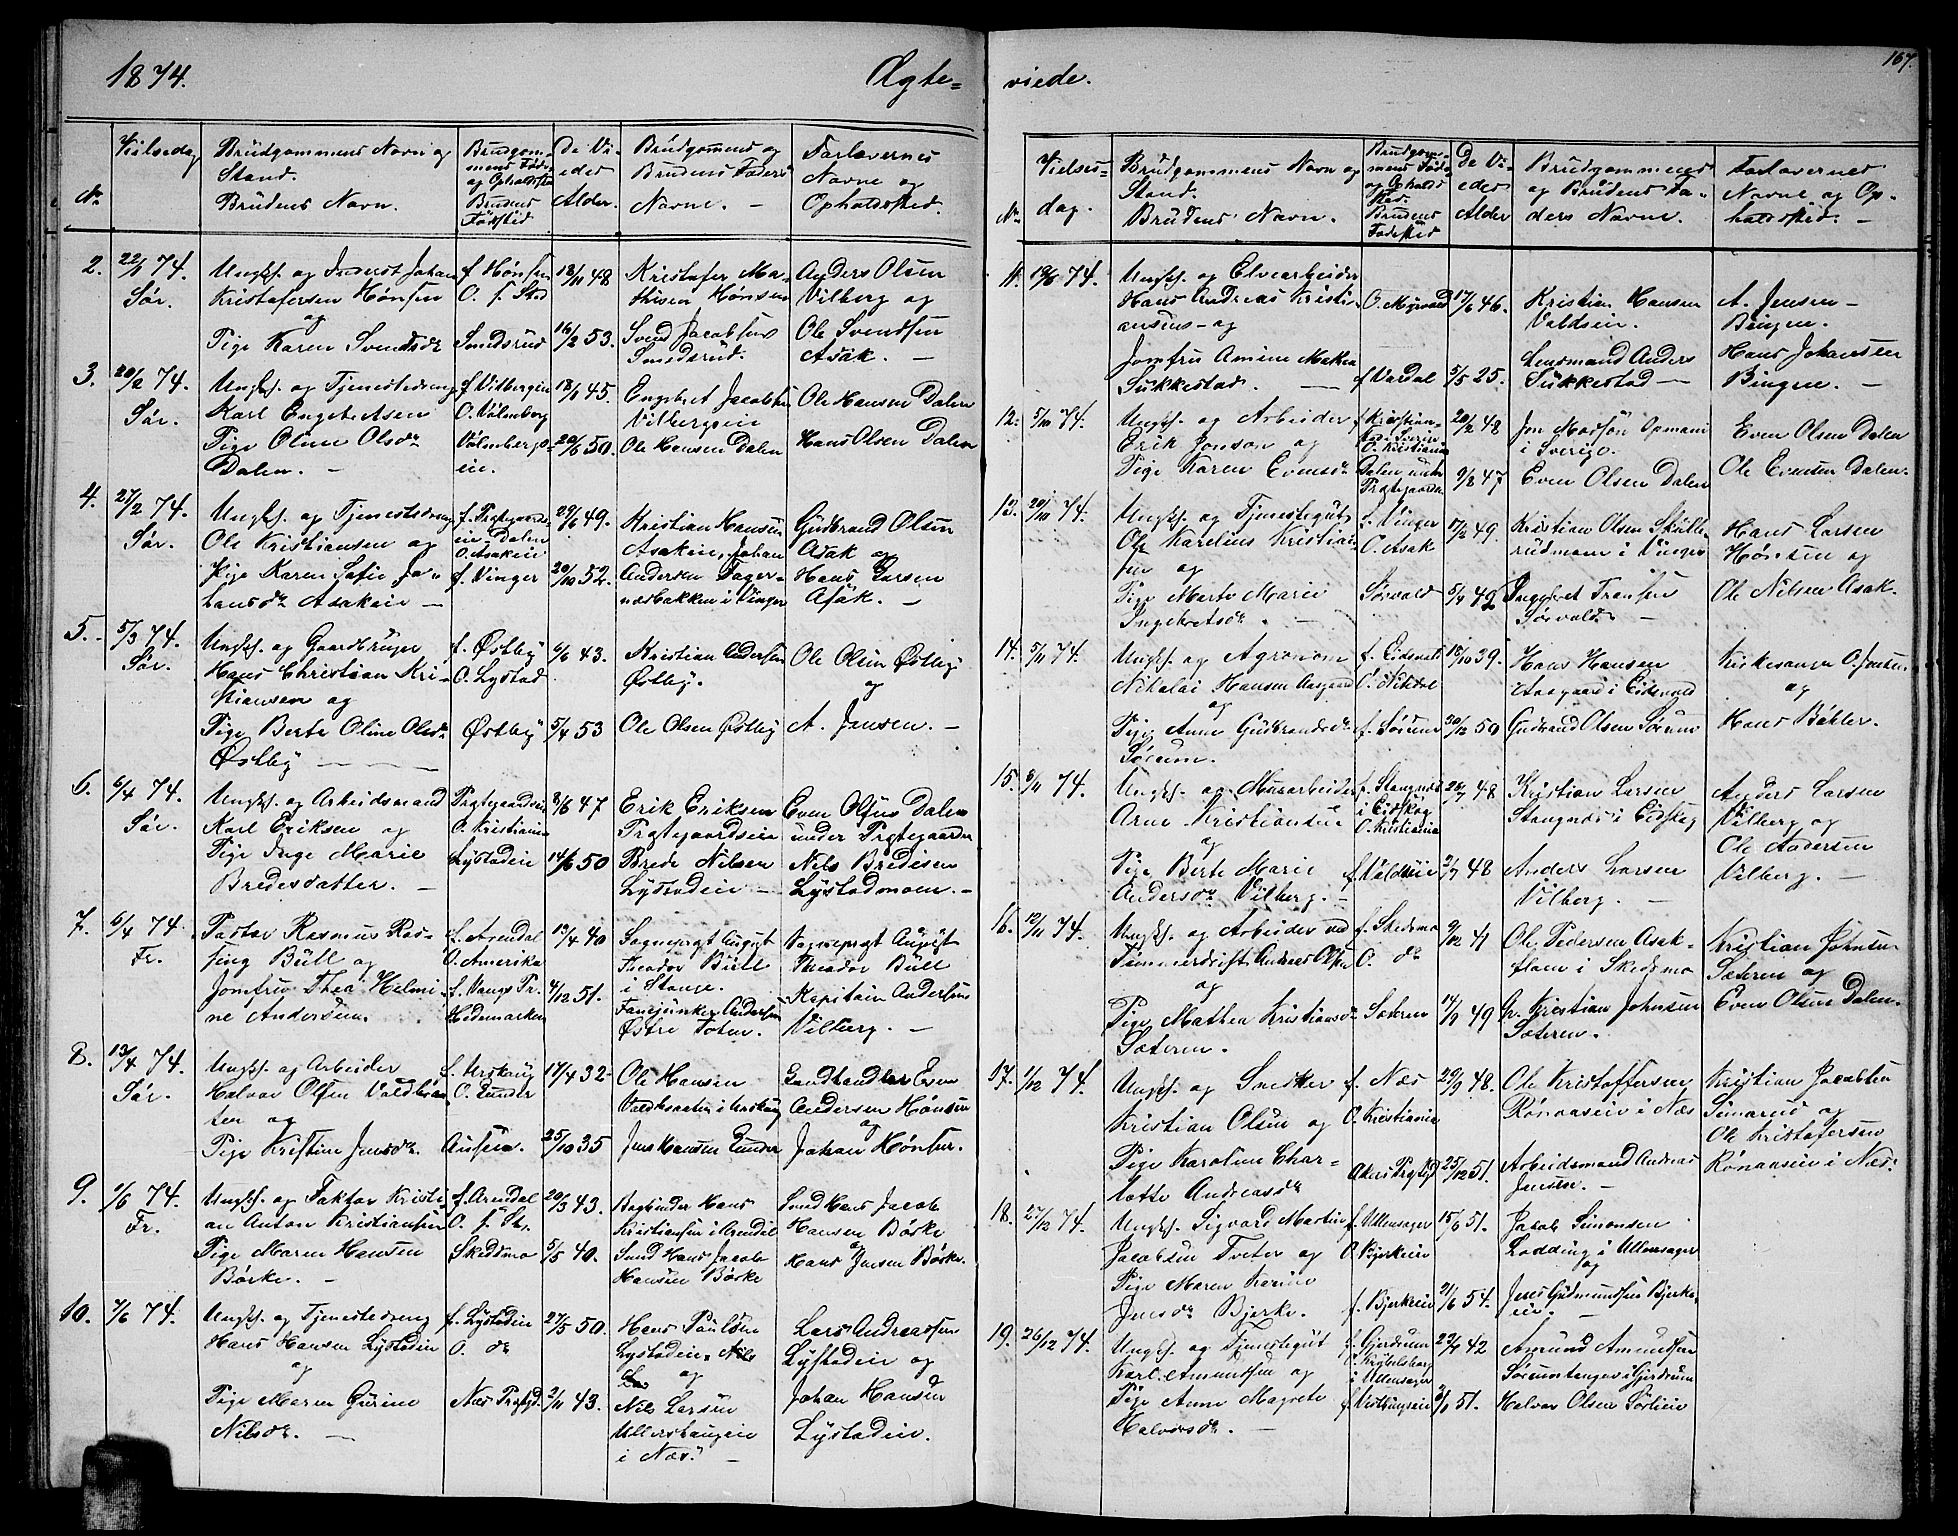 1874.
Ægte=
Vielsedag
Brudgommens Navn og
Stand.
Brudens Navn.
Brudgom-
mens Føde
og Opholdssted
Brudens
Fødsted
De Vi-
edes
Alder.
Brudgomens og
Brudens Faders
Navne. —
Forlovernes
Navne og
Opholdssted.
No
2. 22/1 74.
Sør.
Ungk. og Inderst Johan
Kristofersen Hønsen
og
Pige Karen Svendsdr
f. Hønsen
O. f. Sted
Smedsrud
18/11 48
16/2 53.
Kristofer Ma-
thisen Hønsen
Svend Jacobsen
Smedsrud.
Anders Olsen
Vilberg og
Ole Svendsen
Asak. —
3. 20/2 74.
Sør.
Ungk. og Tjenestedreng
Karl Engebretsen
Pige Oline Olsdr
Dalen. —
f. Vilbergeie
O. Valmberg
Valmbergs-
eie.
18/1 45.
20/6 50.
Engebret Jacobsen
Vilbergeie
Ole Hansen Dalen
Ole Hansen Dalen
Hans Olsen Dalen
4. 27/2 74.
Sør.
Ungk. og Tjenestedreng
Ole Kristiansen og
Pige Karen Sofie Jo-
hansdr Asakeie —
f. Prstegaards-
eie Dalen
O. Asakeie
f. Vinger
29/6 49.
20/10 52.
Kristian Hansen
Asakeie, Johan
Andersen Fager-
næsbakken i Vinger
Gudbrand Olsen
Asak og
Hans Larsen
Asak. —
5. 5/3 74.
Sør.
Ungk. og Gaardbruger
Hans Christian Kri-
stiansen og
Pige Berte Oline Olsdr
Østby
f. Østby
O. Lystad
Østby
6/6 43.
5/4 53
Kristian Andersen
Østby.
Ole Olsen Østby
Ole Olsen Østby
og
A. Jansen. —
6. 6/4 74.
Sør.
Ungk. og Arbeidsmand
Karl Eriksen og
Pige Inge Marie
Bredesdatter. —
Prstegaardseie
O. Kristiania
Lystadeie
8/6 47
14/6 50
Erik Eriksen
Prstegaardseie
Brede Nilsen
Lystadeie —
Even Olsens Dalen
under Prstegaarden
Nils Bredesen
Lystadmoen. —
7. 6/4 74
Fr.
Pastor Rasmus Ras-
sing Bull og
Jomfru Thea Helmi-
ne Andersen.
f. Arendal
O. Amerika
f. Vangs Pr.
Hedemarken
13/4 40
4/12 51.
Sognepræst August
Theodor Bull
i Stange.
Fanejunker Andersen
Østre Toten.
Sognepræst August
Theodor Bull
Kapitain Andersen
Vilberg. —
8. 13/4 74.
Sør.
Ungk. og Arbeider
Halvor Olsen Valdbraa-
ten og
Pige Kristine Jensdr.
f. Urskoug
O. Lunder
17/4 32
25/10 35
Ole Hansen
Valdbraaten i Urskoug
Jens Hansen Lunder
Landhandler Even
Andersen Hønsen
og
Johan Hønsen.
9. 1/6 74.
Fr.
Ungk. og Faktor Kristi-
an Anton Kristiansen
Pige Maren Hansen
Børke. —
f. Arendal
O. f. St.
Skedsmo
20/3 43.
5/5 40.
Bogbinder Hans
Kristiansen i Arendal
Lensd Hans Jacob
Hansen Børke
Lensd Hans Jacob
Hansen Børke
Hans Jensen Børke.
10. 7/6 74.
Ungk. og Tjenestedreng
Hans Hansen Lystadeie
og
Pige Maren Gurine
Nilsdr. —
f. Lystadeie
O. dr
Næs Prstgd.
27/5 50.
2/11 43.
Hans Paulsen
Lystadeie. Nils
og
Nils Larsen
Ullershaugeie
i Næs. —
Lars Andreassen
Lystadeie og
Johan Hansen
Lystadeie.
viede.
167.
No
Vielses=
dag.
Brudgommens Navn og
Stand.
Brudens Navn.
Brudgom-
mens Føde
og Opholds
sted.
Brudens
Fødested
De Vi-
edes
Alder
Brudgommens
og Brudens Fa-
ders Navne.
Forlovernes
Navne og Op-
holdssted. —
11. 19/6 74.
Ungk. og Elvearbeider
Hans Andreas Kristi-
ansens og
Jomfru Amine Mathea
Sukkestad. —
O. Myrvold
f. Vardal
17/6 46.
5/5 25.
Kristian Hansen
Valdseie.
Lensmand Anders
Sukkestad —
A. Jensen —
Bingen.
Hans Johansen
Bingen. —
12. 5/10 74.
Ungk. og Arbeider
Erik Jonson og
Pige Karen Evensdr
O. Kristiania
Dalen under
Prstegaarden
20/2 48
9/8 47
Jon Monson Opmann
i Sverige.
Even Olsen Dalen
Even Olsen Dalen
Ole Evensen Dalen.
13. 20/10 74.
Ungk. og Tjenestegut
Ole Karelius Kristian-
sen og
Pige Marte Marie
Ingebretsdr. —
f. Vinger
O. Asak
Sørvald
17/2 49.
5/4 49
Kristian Olsen Skulle-
rudmoen i Vinger
Ingebret Fransen
Sørvald.
Hans Larsen
Hønsen og
Ole Nilsen Asak.
14. 5/11 74.
Ungk. og Agronom
Nikolai Hansen Aasgaard
og
Pige Anne Gudbrandsdr
Sørum.
f. Eidsvold
O. Nitedal
f. Sørum
18/10 39.
30/12 50
Hans Hansen
Aasgaard i Eidsvold
Gudbrand Olsen Sørum
Kirkesanger O. Jensen
og
Hans Bøhler.
15. 6/11 74.
Ungk. og Murarbeider
Arne Kristiansen
og
Pige Berte Marie
Andersdr Vilberg. —
f. Stangnæs
i Eidskog
O. Kristiania
f. Valdseie
20/7 48
2/7 48
Kristian Larsen
Stangnæs i Eidskog
Anders Larsen
Vilberg. —
Anders Larsen
Vilberg og
Ole Andersen
Vilberg. —
16. 12/11 74.
Ungk. og Arbeider ved
Tømmerdrift Andreas Olsen
og
Pige Mathea Kristiansdr
Sæteren.
f. Skedsmo
O. dr
Sæteren
9/12 41
14/9 49
Ole Pedersen Asak-
floen i Skedsmo
Gr. Kristian Johnsen
Sæteren.
Kristian Johnsen
Sæteren og
Even Olsen Dalen.
17. 1/12 74.
Ungk. og Snedker
Kristian Olsen og
Pige Karoline Char-
lotte Andreasdr
f. Næs
O. Kristiania
Akers Prstgd
29/9 48.
25/12 51.
Ole Kristoffersen
Rønaaseie i Næs
Arbeidsmand Andreas
Jensen. —
Kristian Jacobsen
Simarud og
Ole Kristofersen
Rønaaseie i Næs.
18. 27/12 74.
Ungk. Sigvard Martin
Jacobsen Tveter og
Pige Maren Karine
Jensdr Bjerke.
f. Ullensager
O. Bjerkeie
f. Bjerkeie
15/6 51.
21/6 54.
Jacob Simonsen
Lodding i Ullensager
og
Jens Gudmundsen Bjerke-
eie.
19. 26/12 74.
Ungk. og Tjenestegut
Karl Amundsen og
Pige Anne Magrete
Halvorsdr. —
f. Gjerdrum
i Ullensager
23/4 42
9/1 51.
Amund Amundsen
Sørumtangen i Gjerdrum
Halvor Olsen Sørlieie